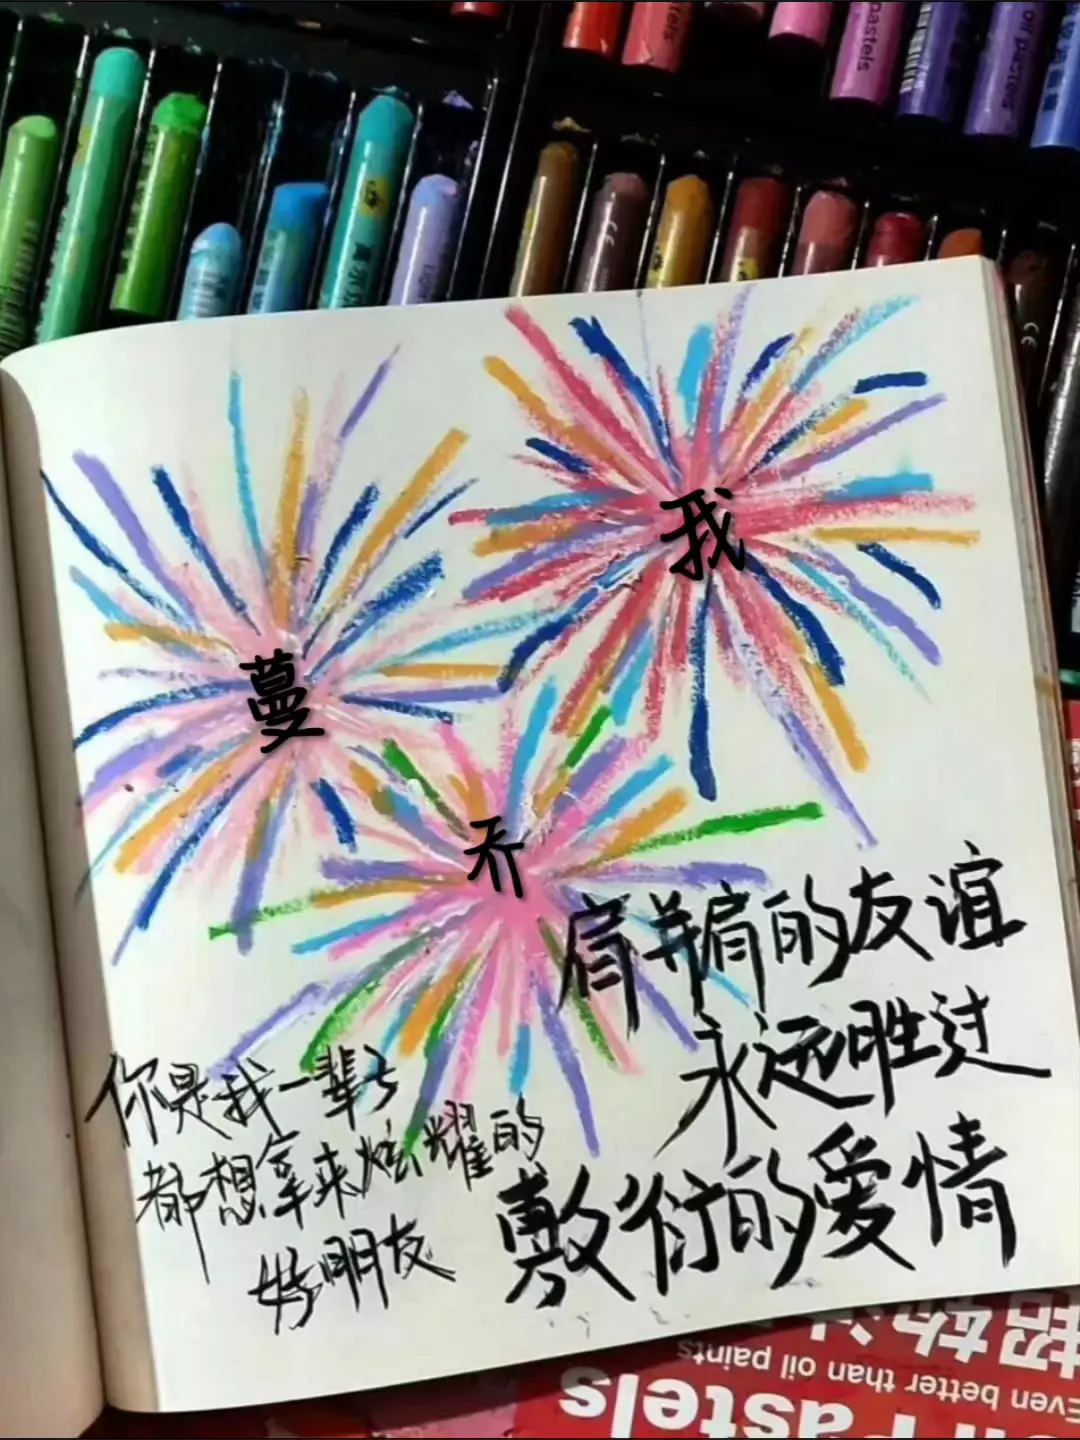 pastels
oil pastels
我
蔓
乔
肩并肩的友谊
永远胜过
敷衍的爱情
你是我一辈子
都想拿来炫耀的
好朋友
Even better than oil paints
Pastels